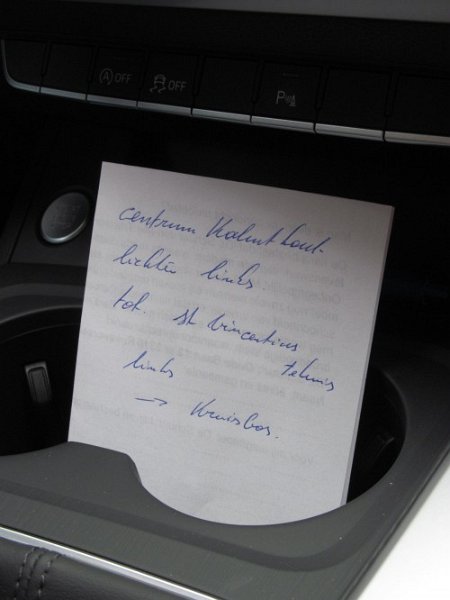 A OFF OFF P
centrum Kalmthout.
lichten links.
tot. st Vincentius tehuis
links
→ Kruisbos.